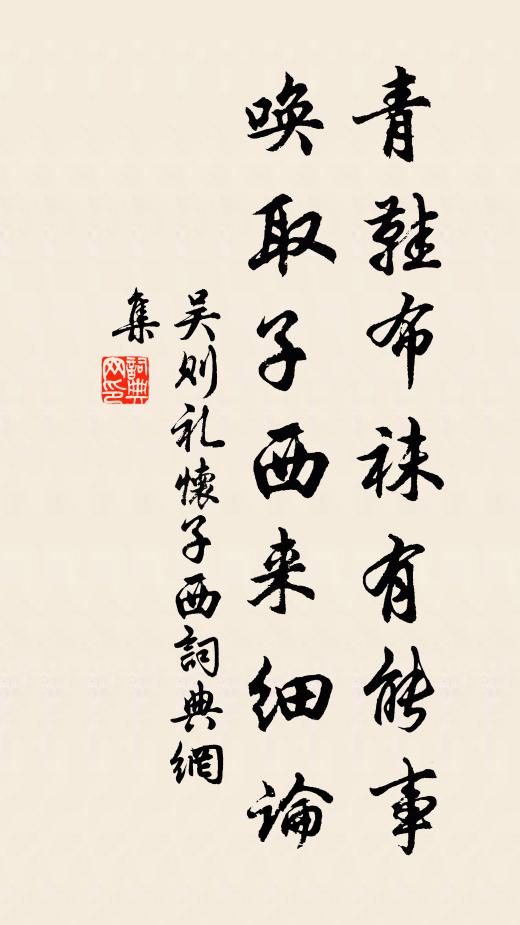 青鞋布袜有能事
唤取子西来细论
吴则礼懷子西詞典網
集
詞典
网印